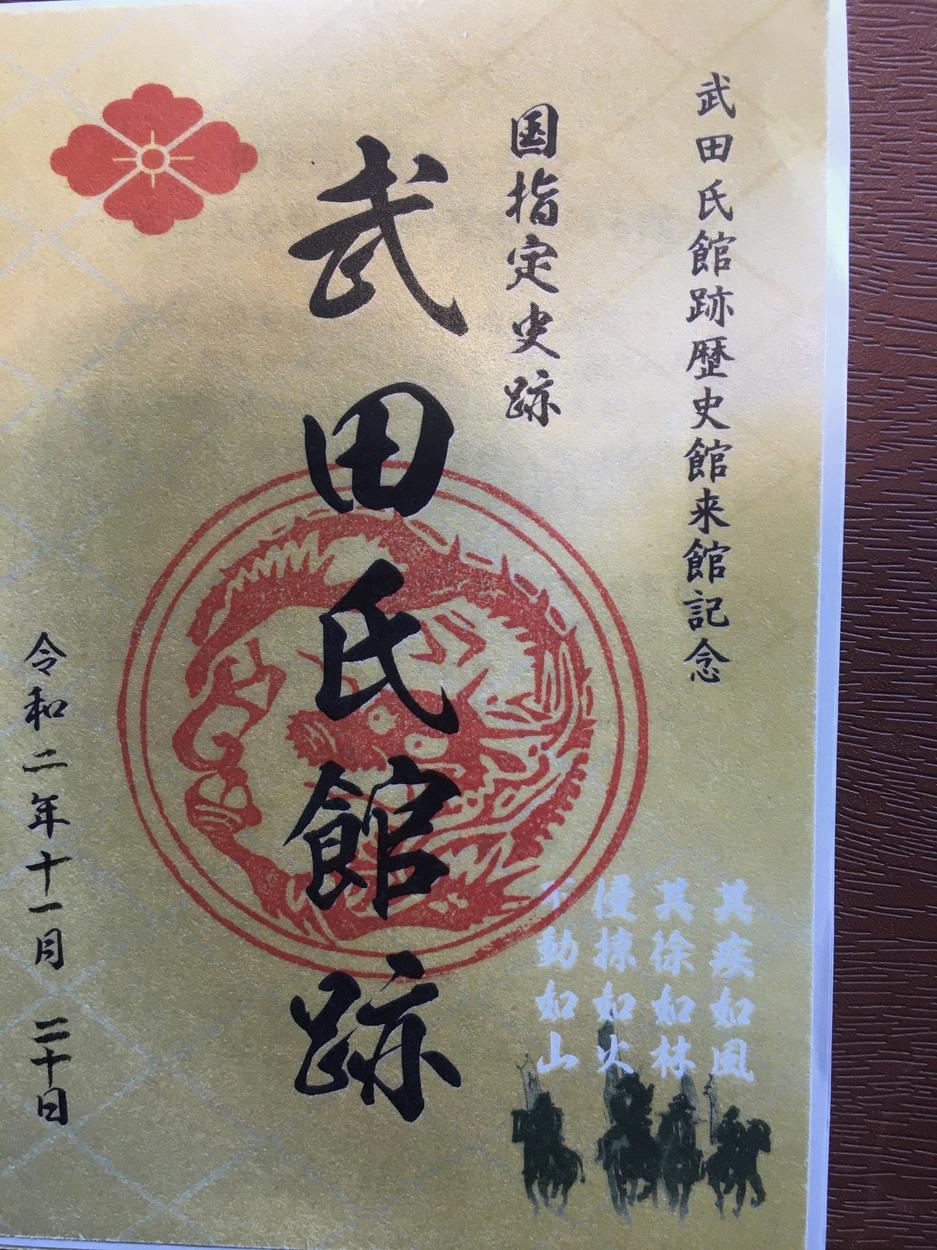 武田氏館跡歴史館来館記念
国指定史跡
武田氏館跡
其疾如風
其徐如林
侵掠如火
不動如山
令和二年十一月二十日